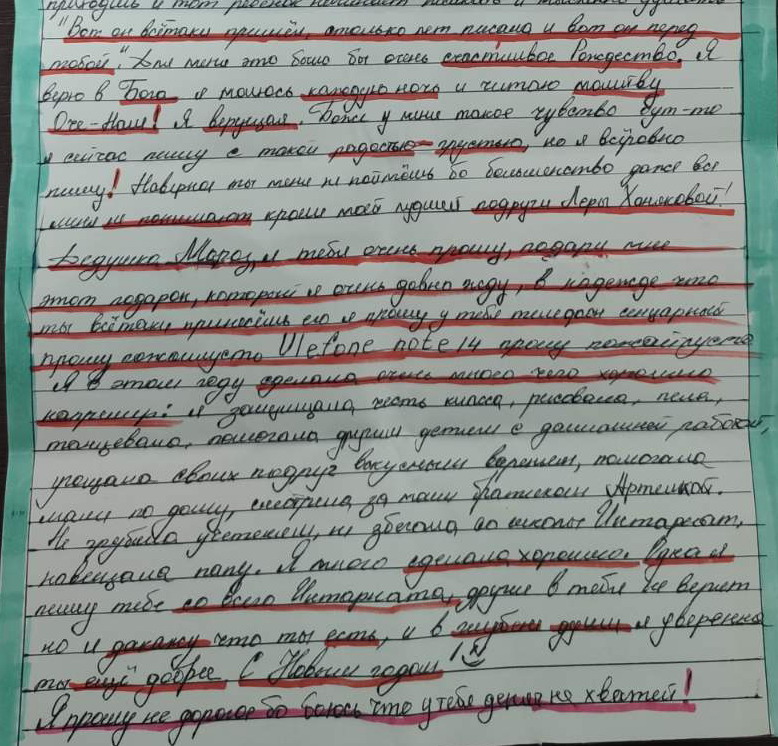 приходишь и тот ребёнок начинает
"Вот он всётаки пришёл, столько лет писала и вот он перед
тобой". Для меня это было бы очень счастливое Рождество. Я
верю в Бога я молюсь каждую ночь и читаю молитву
Оче-Наш! Я верущая. Боже у меня такое чувство бут-то
я сейчас пишу с такой радостью-грустью, но я всёровно
пишу! Навирное ты меня не поймёшь бо большенство даже все
меня не понимают кроме моей лудшей подруги Леры Хоняковой!
Дедушка Мороз, я тебя очень прошу, подари мне
этот подарок, который я очень давно жду, в надежде что
ты всётаки принесёшь его я прошу у тебя теледвон сенцарный
прошу пожалусто Ulefone note 14 прошу пожайлусто
Я в этом году сделала очень много чего хорошего
например: я защищала честь класса, рисовала, пела,
танцевала, помогала другим детям с домашней работой,
угощала своих подруг вкусным варенем, помогала
маме по дому, смотрела за моим братиком Артемкой.
Не грубила учетелям, не збегала со школы Интарнат,
навещала папу. Я много сделала хорошего. Одна я
пишу тебе со всего Интарната, другие в тебя не верют
но я дакажу что ты есть, и в глубене души я уверенна
ты ещё добрее С Новым годом!
Я прошу не дорогое бо боюсь что у тебя денег не хватей!